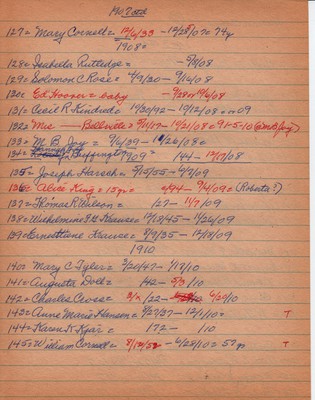 127= Mary Cornell= 12/6/33 - 12/25/07= 74y
1908=
128= Isabella Rutledge= - 9/7/08
129= Solomon C Rose= 4/9/30 - 9/16/08
130= Ed Hoover= baby - 9/28 or 10/6/08
131= Cecil R Kindred= 10/20/92 - 10/12/08= or 09
132= Mrs Bellville= 9/11/17 - 10/21/08=
133= M B Joy= 9/6/39 - 10/26/08=
134= Buffington 1909= 144 - 12/17/08
135= Joseph Harsch= 9/10/55 - 4/7/09
136= Alice King= 15yr= 94 - 9/4/09= (Roberta?)
137= Thomas R Wilson= 127 - 11/7/09
138= Wilhelmine Krause= 12/18/45 - 11/26/09
139= Ernestiene Krause= 8/9/35 - 12/18/09
1910
140= Mary C Tyler= 3/20/47 - 1/18/10
141= Augusta Doll= 142 - /10
142= Charles Cross= /22 - 6/27/10
143= Anne Marie Hansen= 8/27/37 - 12/1/10= T
144= Karen K Kjar= 172 - /10
145= William Cornell= 8/12/52 - 6/28/10= 57y T